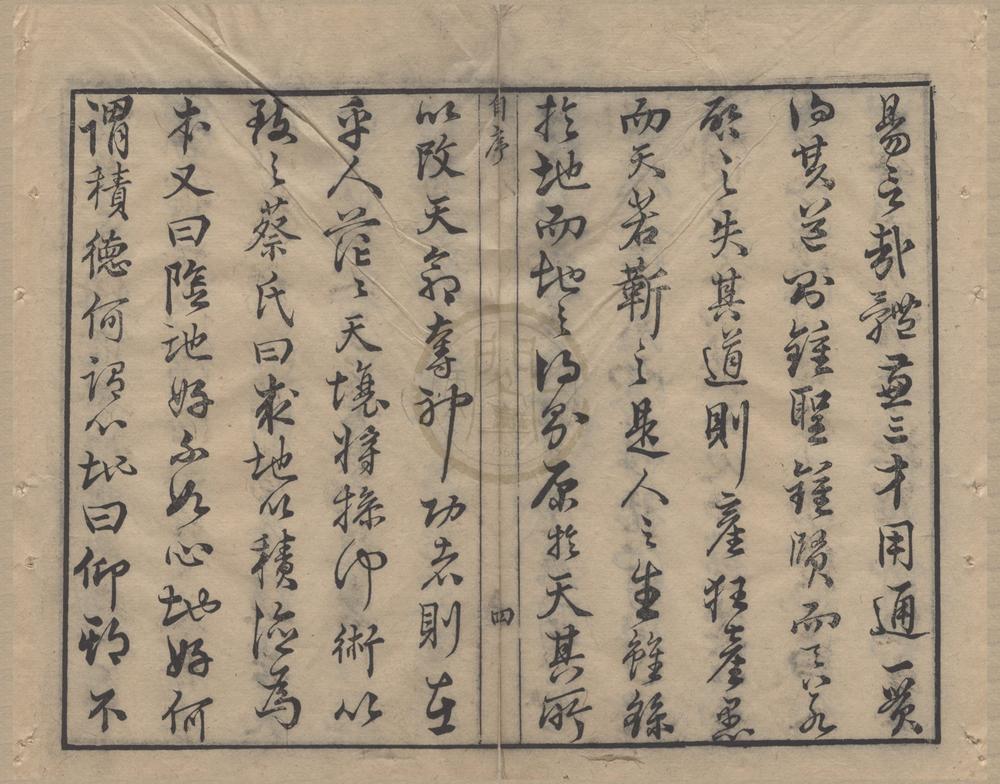 易言哉體兼三才用通一貫
得其道則鍾聖鍾賢而天若
啟之失其道則產狂產愚
而天若蘄之是人之生雖繇
於地而地之得 原於天其所
自序
四
以改天命奪神功者則在
乎人茫〻天壤將操何術以
致之蔡氏曰求地以積德為
本又曰陰地好不如心地好何
謂積德何謂心地曰仰期不